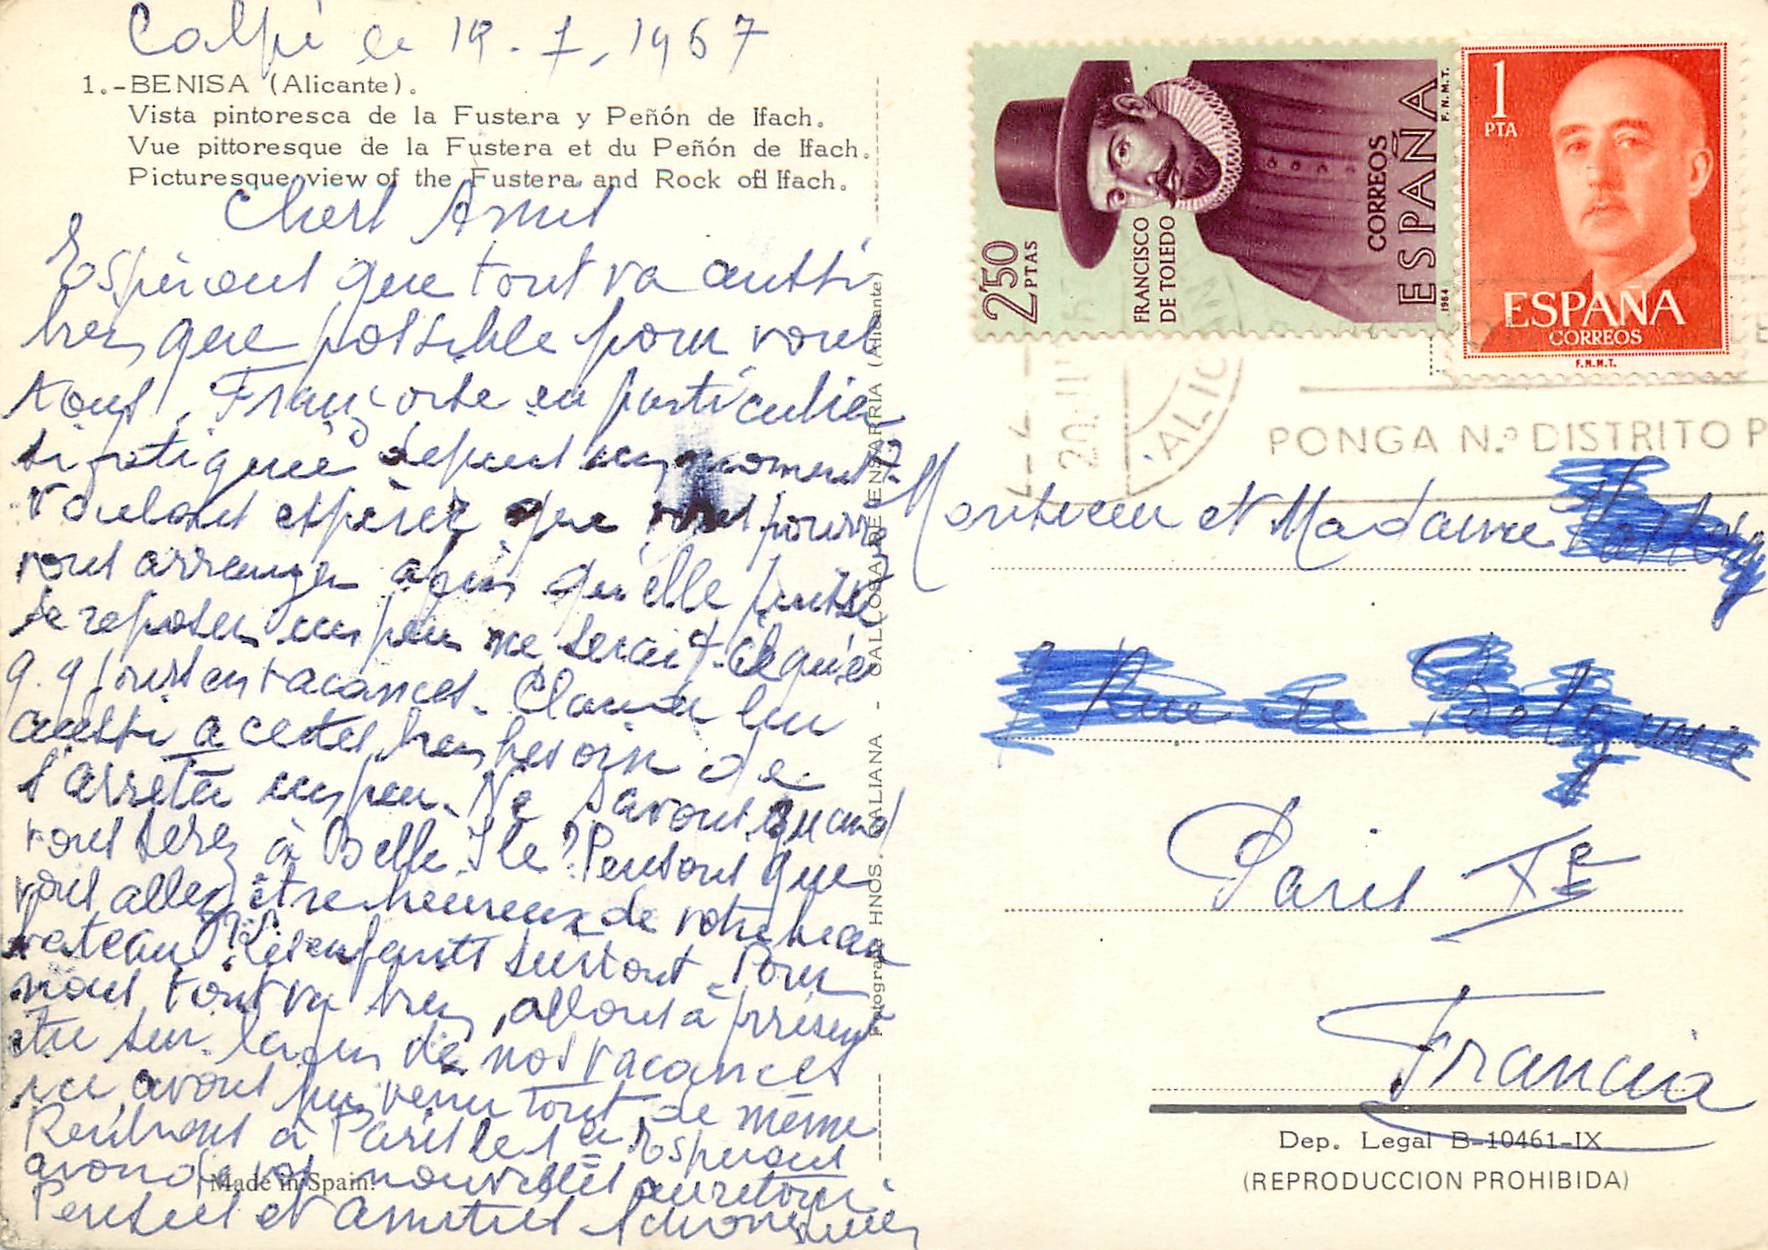 Calpé le 19.7.1967
1.-BENISA (Alicante).
Vista pintoresca de la Fustera y Peñón de Ifach.
Vue pittoresque de la Fustera et du Peñón de Ifach.
Picturesque view of the Fustera and Rock of Ifach.
Chers Amis
Espérons que tout va aussi
bien que possible pour vous
tous, Françoise en particulier
si fatiguée depuis un moment
voulons espérer que vous pourrez
vous arranger afin qu'elle puisse
se reposer un peu ne serait-ce qu'en
q.q jours en vacances. Claude lui
aussi a certes bien besoin de
s'arrêter un peu. Ne savons quand
vous serez à Belle Ile? Pensons que
vous allez être heureux de votre beau
bateau? Les enfants surtout. Pour
nous tout va bien, allons à présent
être sur la fin de nos vacances
ici avons pu venir tout de même
Rentrons à Paris le 1er Espérons
avoir de vos nouvelles au retour.
Pensées et amitiés
Made in Spain
Fotograf. HNOS. GALIANA - CALLOSA DE ENSARRIA (Alicante)
2'50 PTAS
FRANCISCO DE TOLEDO
CORREOS
ESPAÑA
F.N.M.T.
1964
1 PTA
ESPAÑA
CORREOS
F.N.M.T.
ALIC
PONGA N.º DISTRITO P
Monsieur et Madame
Rue de Belzunce
Paris Xe
Francia
Dep. Legal B-10461-IX
(REPRODUCCION PROHIBIDA)